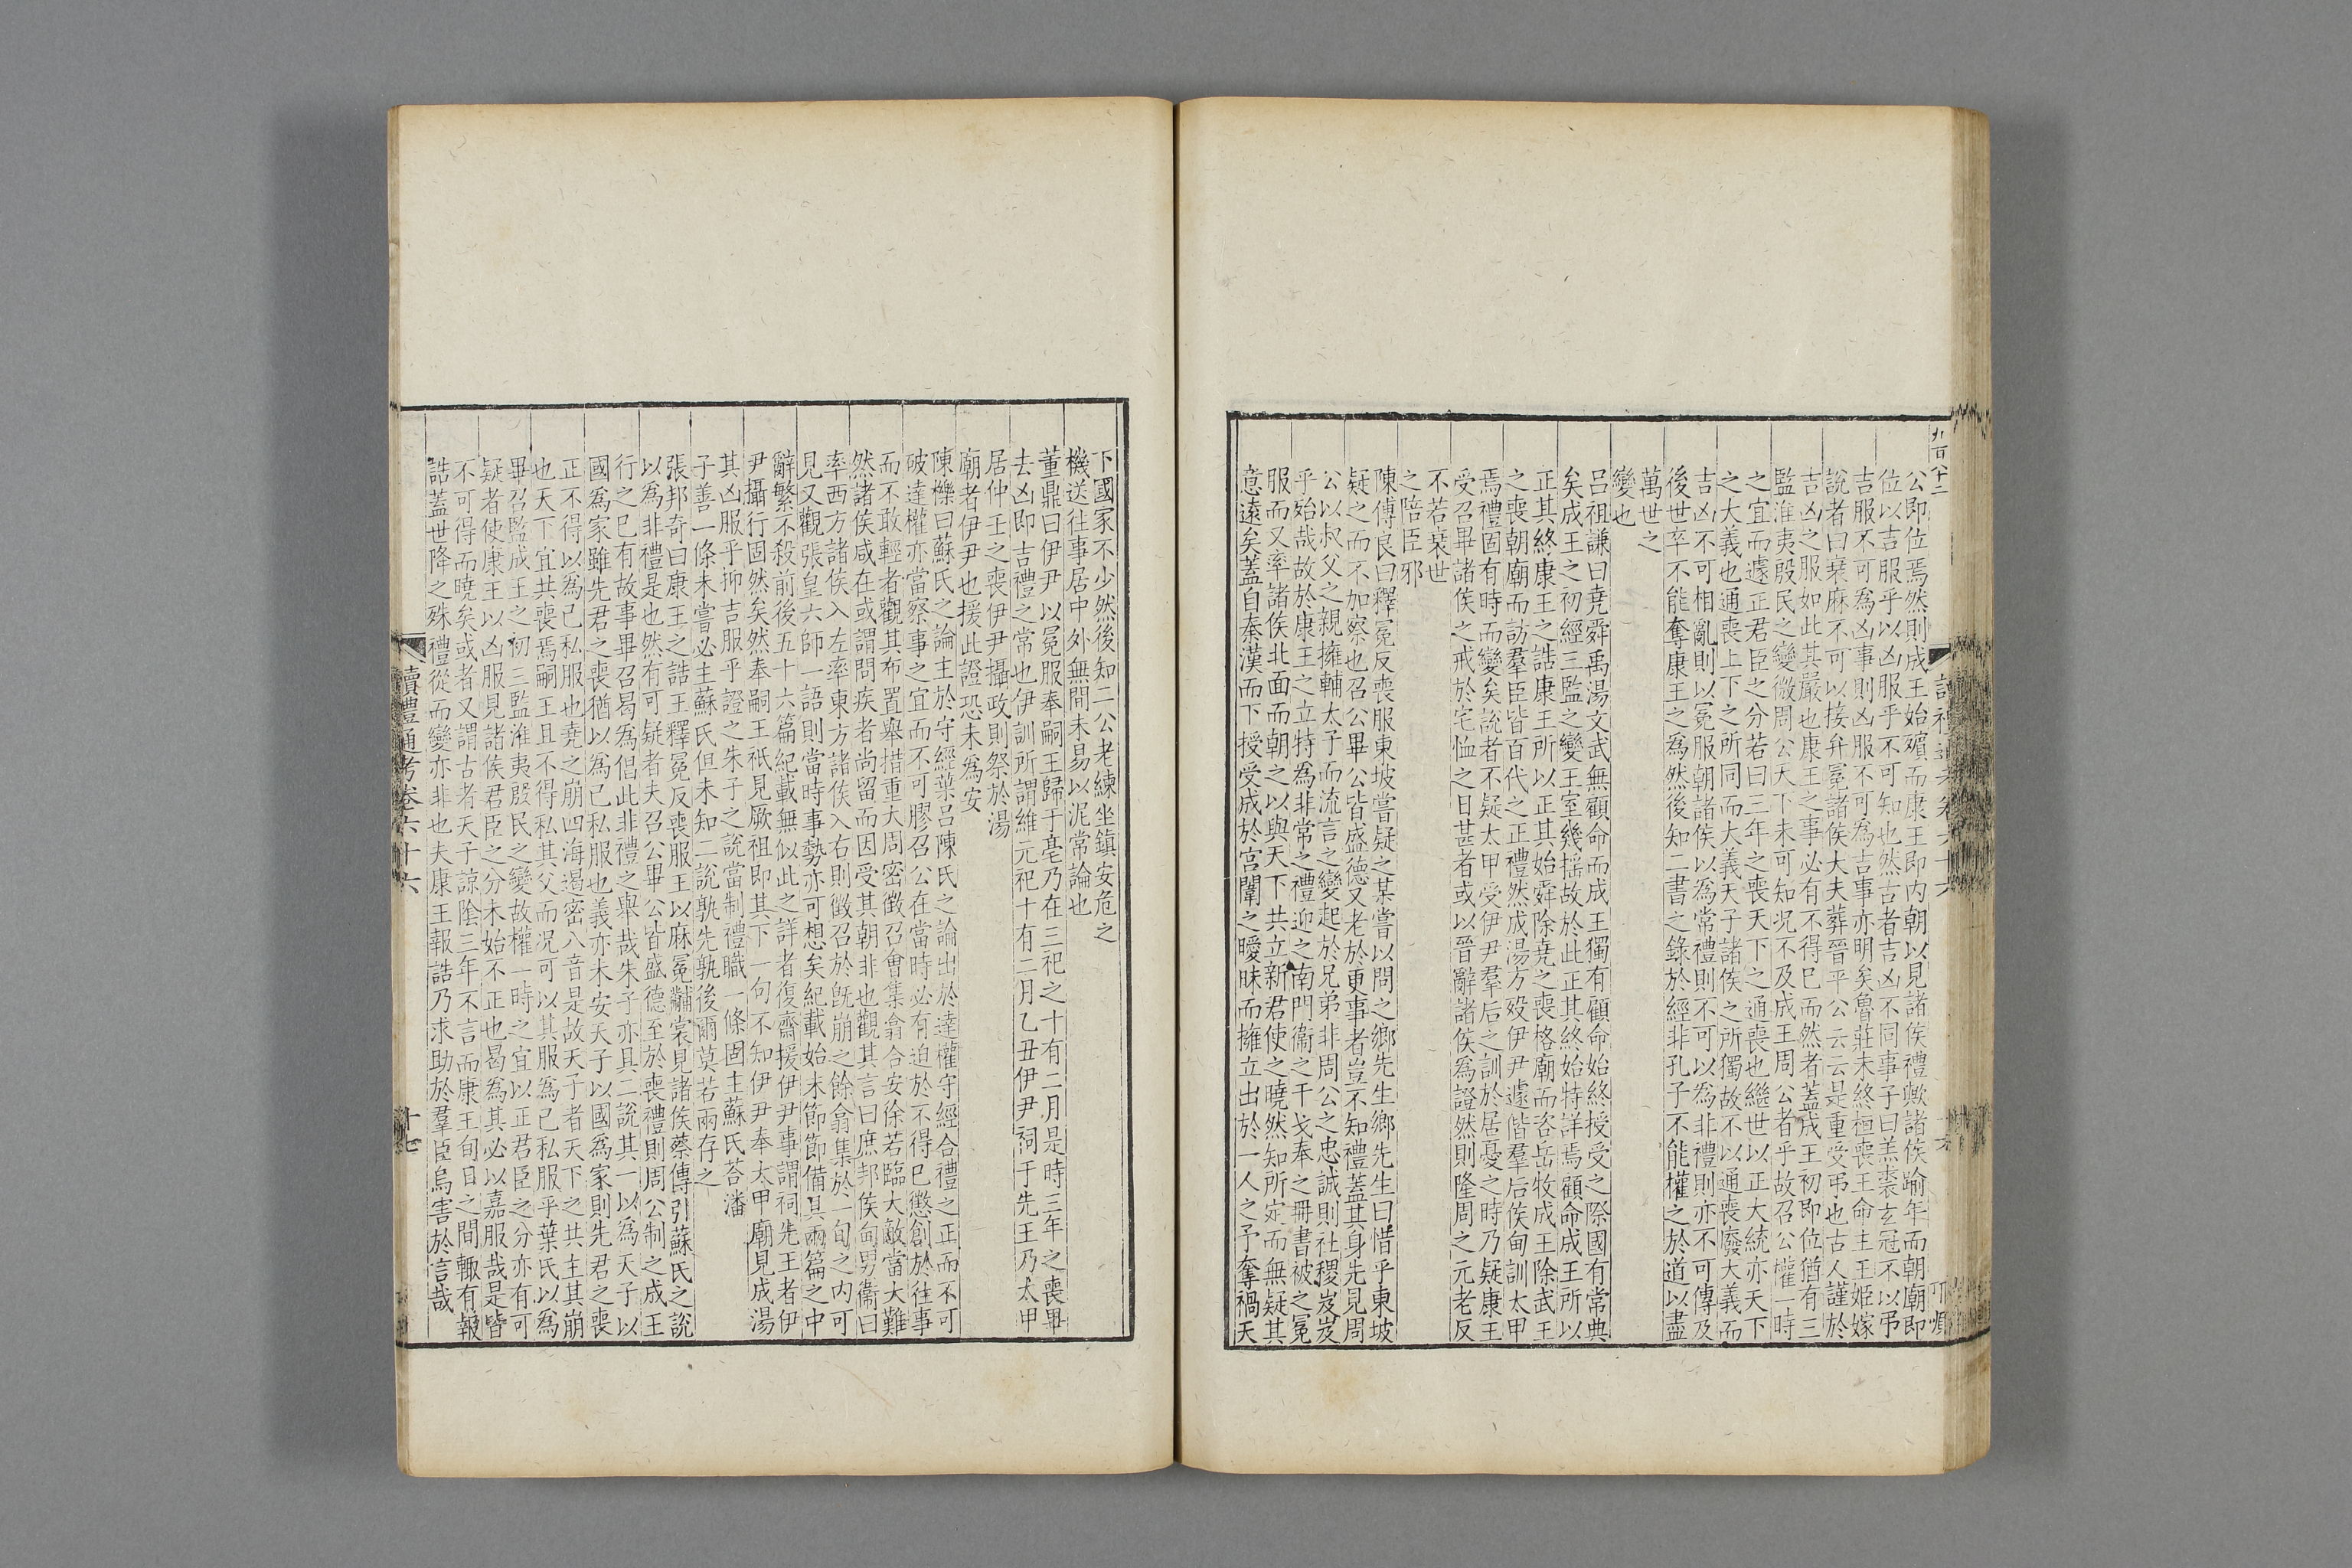 公即位焉然則成王始殯而康王即内朝以見諸侯禮歟諸侯踰年而朝廟即
位以吉服乎以凶服乎不可知也然古者吉凶不同事子曰羔裘玄冠不以弔
吉服不可為凶事則凶服不可為吉事亦明矣魯莊未終桓喪王命主王姬嫁
説者曰衰麻不可以接弁冕諸侯大夫葬晉平公云云是重受弔也古人謹於
吉凶之服如此其嚴也康王之事必有不得巳而然者蓋成王初即位猶有三
監淮夷殷民之變微周公天下未可知况不及成王周公者乎故召公權一時
之宜而遽正君臣之分若曰三年之喪天下之通喪也繼世以正大統亦天下
之大義也通喪上下之所同而大義天子諸侯之所獨故不以通喪廢大義而
吉凶不可相亂則以冕服朝諸侯以為常禮則不可以為非禮則亦不可傳及
後世卒不能奪康王之為然後知二書之錄於經非孔子不能權之於道以盡
萬世之
變也
呂祖謙曰堯舜禹湯文武無顧命而成王獨有顧命始終授受之際國有常典
矣成王之初經三監之變王室幾揺故於此正其終始特詳焉顧命成王所以
正其終康王之誥康王所以正其始舜除堯之喪格廟而咨岳牧成王除武王
之喪朝廟而訪羣臣皆百代之正禮然成湯方殁伊尹遽偕羣后侯甸訓太甲
焉禮固有時而變矣説者不疑太甲受伊尹羣后之訓於居憂之時乃疑康王
受召畢諸侯之戒於宅恤之日甚者或以晉辭諸侯爲證然則隆周之元老反
不若衰世
之陪臣邪
陳傅良曰釋冕反喪服東坡嘗疑之某嘗以問之鄉先生鄉先生曰惜乎東坡
疑之而不加察也召公畢公皆盛德又老於更事者豈不知禮蓋其身先見周
公以叔父之親擁輔太子而流言之變起於兄弟非周公之忠誠則社稷岌岌
乎殆哉故於康王之立特為非常之禮迎之南門衞之干戈奉之冊書被之冕
服而又率諸侯北面而朝之以與天下共立新君使之曉然知所定而無疑其
意遠矣蓋自秦漢而下授受成於宮闈之曖昧而擁立出於一人之予奪禍天
下國家不少然後知二公老練坐鎮安危之
機送往事居中外無間未易以泥常論也
董鼎曰伊尹以冕服奉嗣王歸于亳乃在三祀之十有二月是時三年之喪畢
去凶即吉禮之常也伊訓所謂維元祀十有二月乙丑伊尹祠于先王乃太甲
居仲壬之喪伊尹攝政則祭於湯
廟者伊尹也援此證恐未爲安
陳櫟曰蘇氏之論主於守經葉呂陳氏之論出於達權守經合禮之正而不可
破達權亦當察事之宜而不可膠召公在當時必有迫於不得巳懲創於往事
而不敢輕者觀其布置舉措重大周密徵召會集翕合安徐若臨大敵當大難
然諸侯咸在或謂問疾者尚留而因受其朝非也觀其言曰庶邦侯甸男衞曰
率西方諸侯入左率東方諸侯入右則徵召於旣崩之餘翕集於一旬之内可
見又觀張皇六師一語則當時事勢亦可想矣紀載始末節節備具兩篇之中
辭繁不殺前後五十六篇紀載無似此之詳者復齋援伊尹事謂祠先王者伊
尹攝行固然矣然奉嗣王祇見厥祖即其下一句不知伊尹奉太甲廟見成湯
其凶服乎抑吉服乎證之朱子之說當制禮職一條固主蘇氏荅潘
子善一條未嘗必主蘇氏但未知二說孰先孰後爾莫若兩存之
張邦奇曰康王之誥王釋冕反喪服王以麻冕黼裳見諸侯蔡傳引蘇氏之說
以為非禮是也然有可疑者夫召公畢公皆盛德至於喪禮則周公制之成王
行之巳有故事畢召曷為倡此非禮之舉哉朱子亦具二說其一以為天子以
國爲家雖先君之喪猶以為已私服也義亦未安天子以國爲家則先君之喪
正不得以為已私服也堯之崩四海遏密八音是故天子者天下之共主其崩
也天下宜共喪焉嗣王且不得私其父而况可以其服爲已私服乎葉氏以爲
畢召監成王之初三監淮夷殷民之變故權一時之宜以正君臣之分亦有可
疑者使康王以凶服見諸侯君臣之分未始不正也曷爲其必以嘉服哉是皆
不可得而曉矣或者又謂古者天子諒陰三年不言而康王旬日之間輙有報
誥蓋世降之殊禮從而變亦非也夫康王報誥乃求助於羣臣烏害於言哉
讀禮通考卷六十六
十七